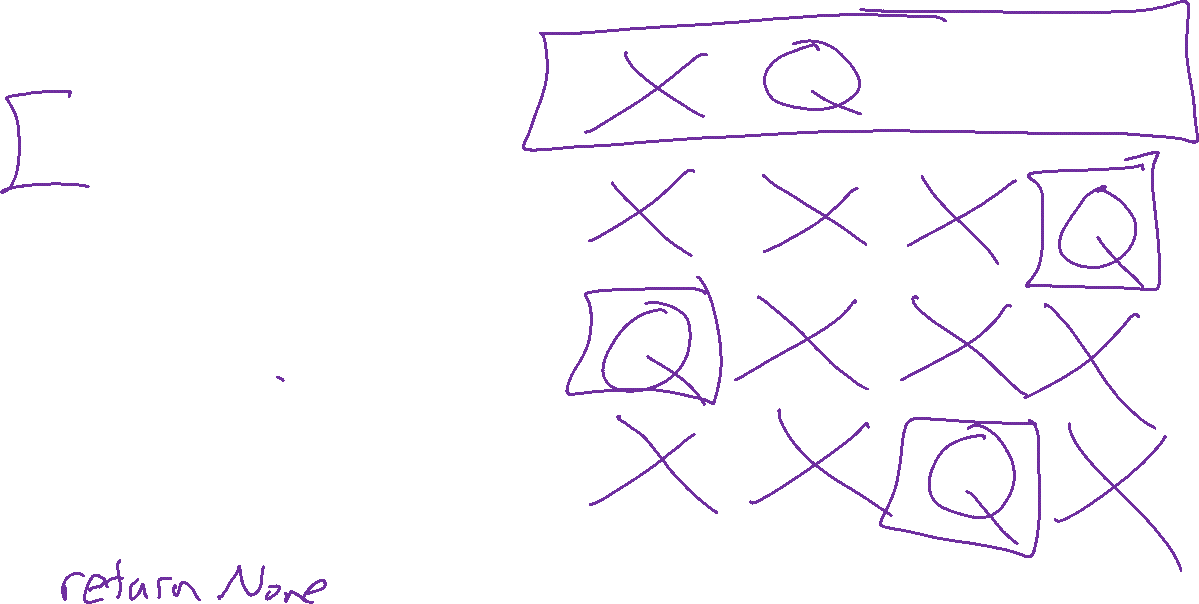 [
X Q
X X X Q
Q X X X
X X Q X
return None